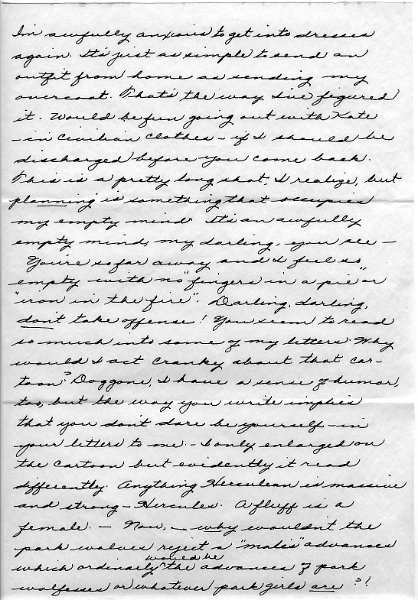 I'm awfully anxious to get into dresses
again. It's just as simple to send an
outfit from home as sending my
overcoat. That's the way I've figured
it. Would be fun going out with Kate
- in civilian clothes - if I should be
discharged before you come back.
This is a pretty long shot, I realize, but
planning is something that occupies
my empty mind. It's an awfully
empty mind, my darling, you see -
You're so far away and I feel so
empty with no "fingers in a pie" or
"iron in the fire". Darling, darling,
don't take offense! You seem to read
so much into some of my letters. Why
would I act cranky about that car-
toon? Doggone, I have a sense of humor,
too, but the way you write implies
that you don't dare be yourself - in
your letters to me. - I only enlarged on
the cartoon but evidently it read
differently. Anything Herculean is massive
and strong - Hercules. A fluff is a
female. - Now, - why wouldn't the
park wolves reject a "male's" advances
would be
which ordinarily the advances of park
wolfesses or whatever park girls are?!